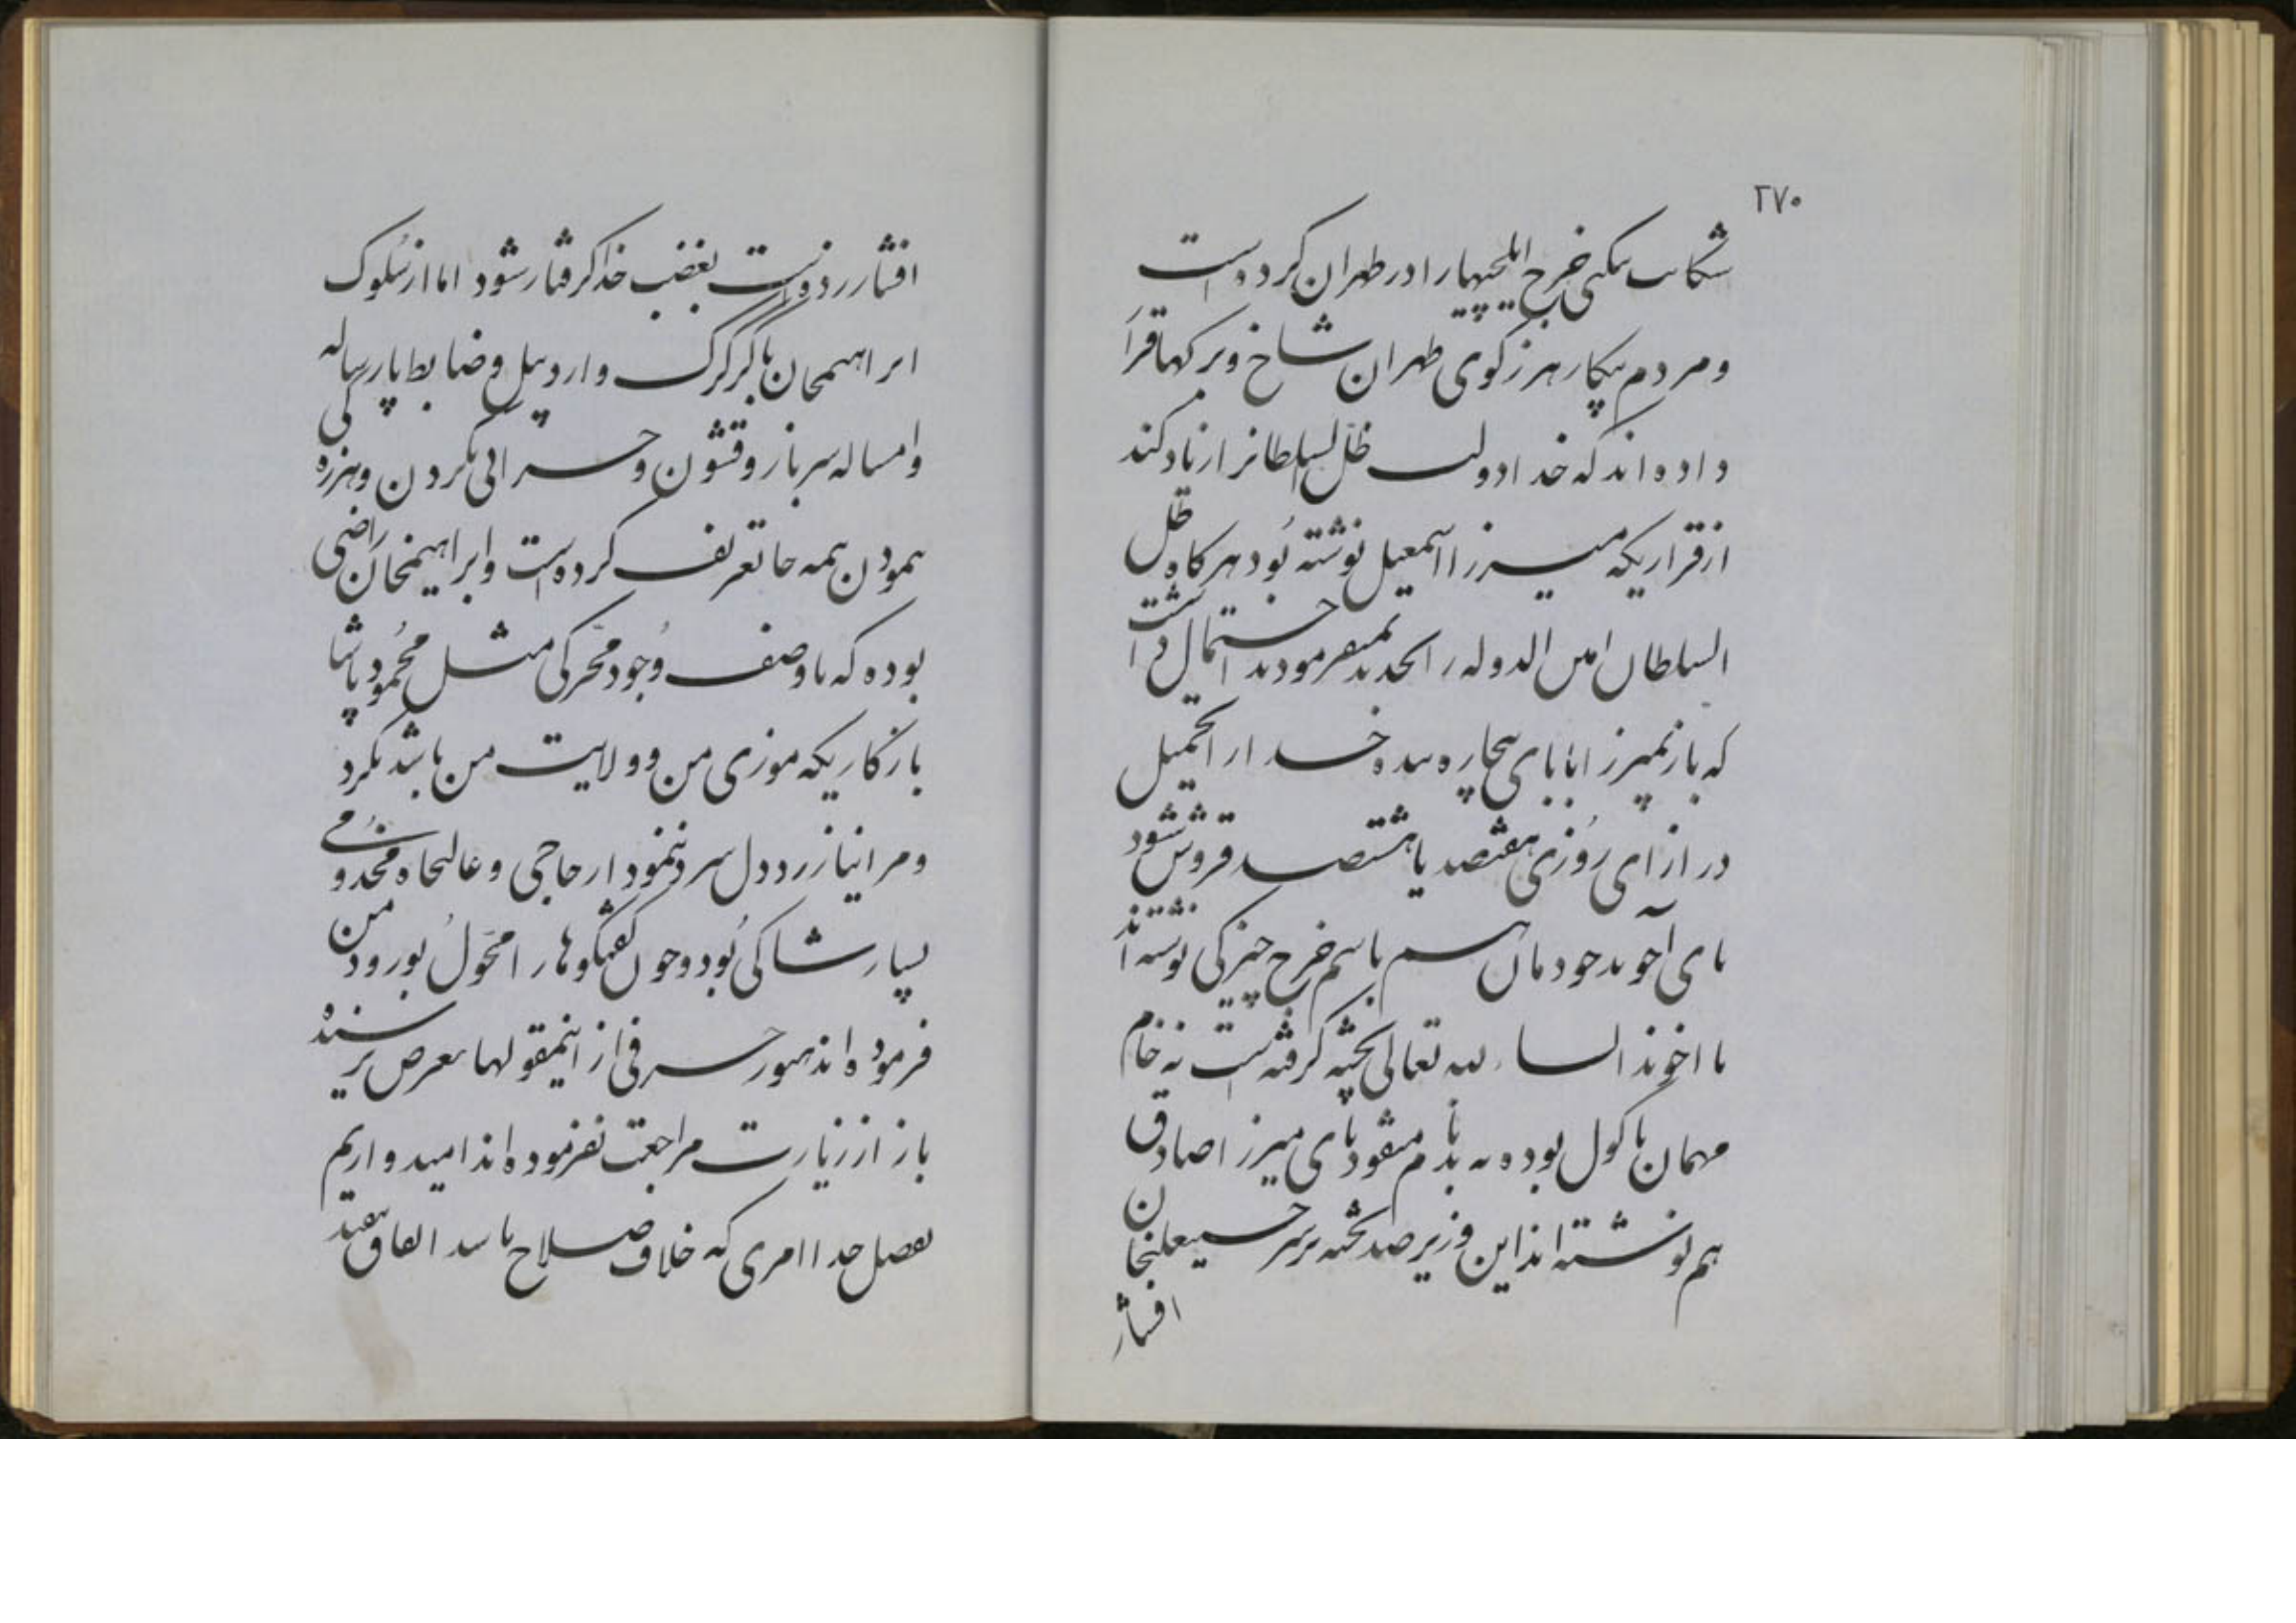 ۲۷۰
شکایت نکنی خرج ایلچیها را در طهران کرده است
و مردم بیکار هرزه کوی طهران شاخ و برکها قرار
داده اند که خدا دولت ظل السلطانرا زیاد کند
از قراریکه میرزا اسمعیل نوشته بود هرکاه ظل
السلطان امین الدوله را نمیفرمودند احتمال داشت
که باز میرزا بابای بیچاره بنده خدا را تحمیل
در ازای روزی هفتصد یا هشتصد قروش شود
آخوند خودمان هم باسم خرج چیزکی نوشته اند
اخوند انشاء لله تعالی پخته کرفته است نه خام
مهمان ماکول بوده نه میرزا صادق
هم نوشته اند این وزیر صد تخته بر سر حسینعلیخان
افشار
افشار زده است بغضب خدا کرفتار شود اما از سلوک
ابراهیمخان با کرکر و اردبیل و ضابط پارساله کی
و امساله سرباز و قشون و حسرانی کردن و هرزه
نمودن همه جا تعریف کرده است و ابراهیمخان راضی
بوده که با وصف وجود محرکی مثل محمود پاشا
باز کاریکه موزی من و ولایت من باشد نکرد
و مرا نیازرد و دل سرد ننمود از حاجی و عالیجاه مخدومی
بسیار شاکی بود و چون کفتکوها را محول بورود من
فرموده اند هنوز حرفی از اینمقولها بعرض نرسیده
باز از زیارت مراجعت نفرموده اند امیدواریم
بفضل خدا امری که خلاف صلاح باشد اتفاق نیفتد